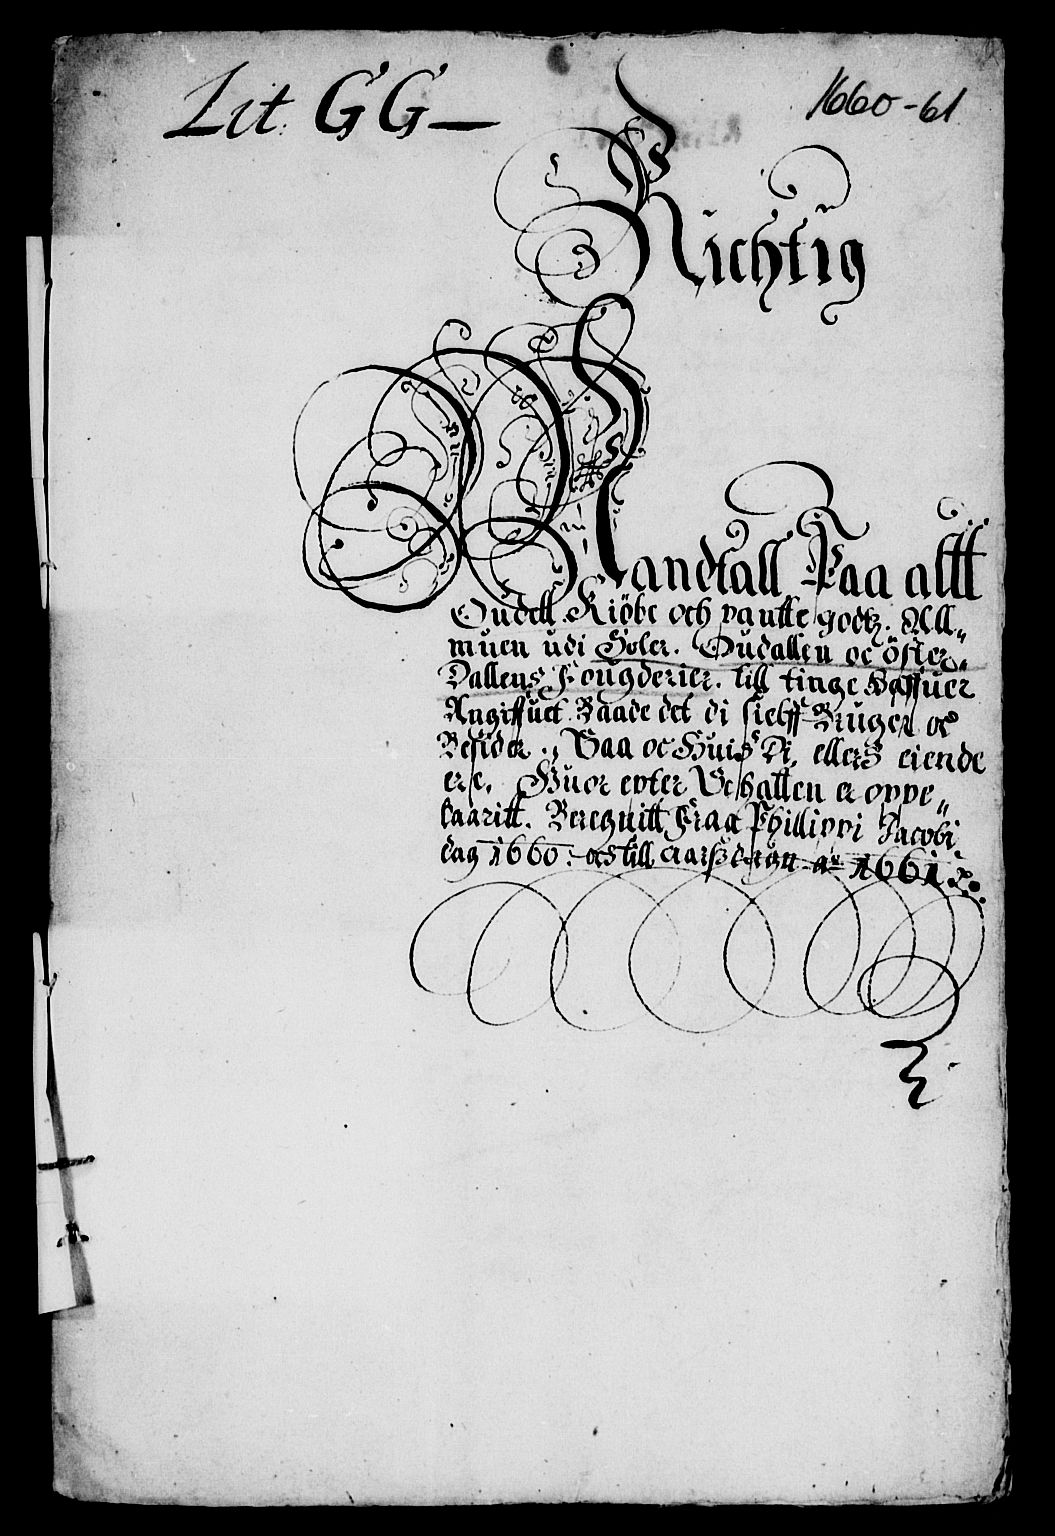 Lit: GG—
1660-61
Richtig
Mandtall Paa altt
Oudell. Kiöbe och pantte godtz. All„
muen udi Soler. Oudallen oc öster„
Dallens Fougderier. till tinge haffuer
Angiffuet. Baade det di sielff Bruger oc
Besider., Saa oc Huis Di, ellers eiende
ere. Huor epter Schatten er oppe„
baaritt. Beregnitt Fraa Phillippi Jacobi
dag 1660. och till aarsdagen ao 1661